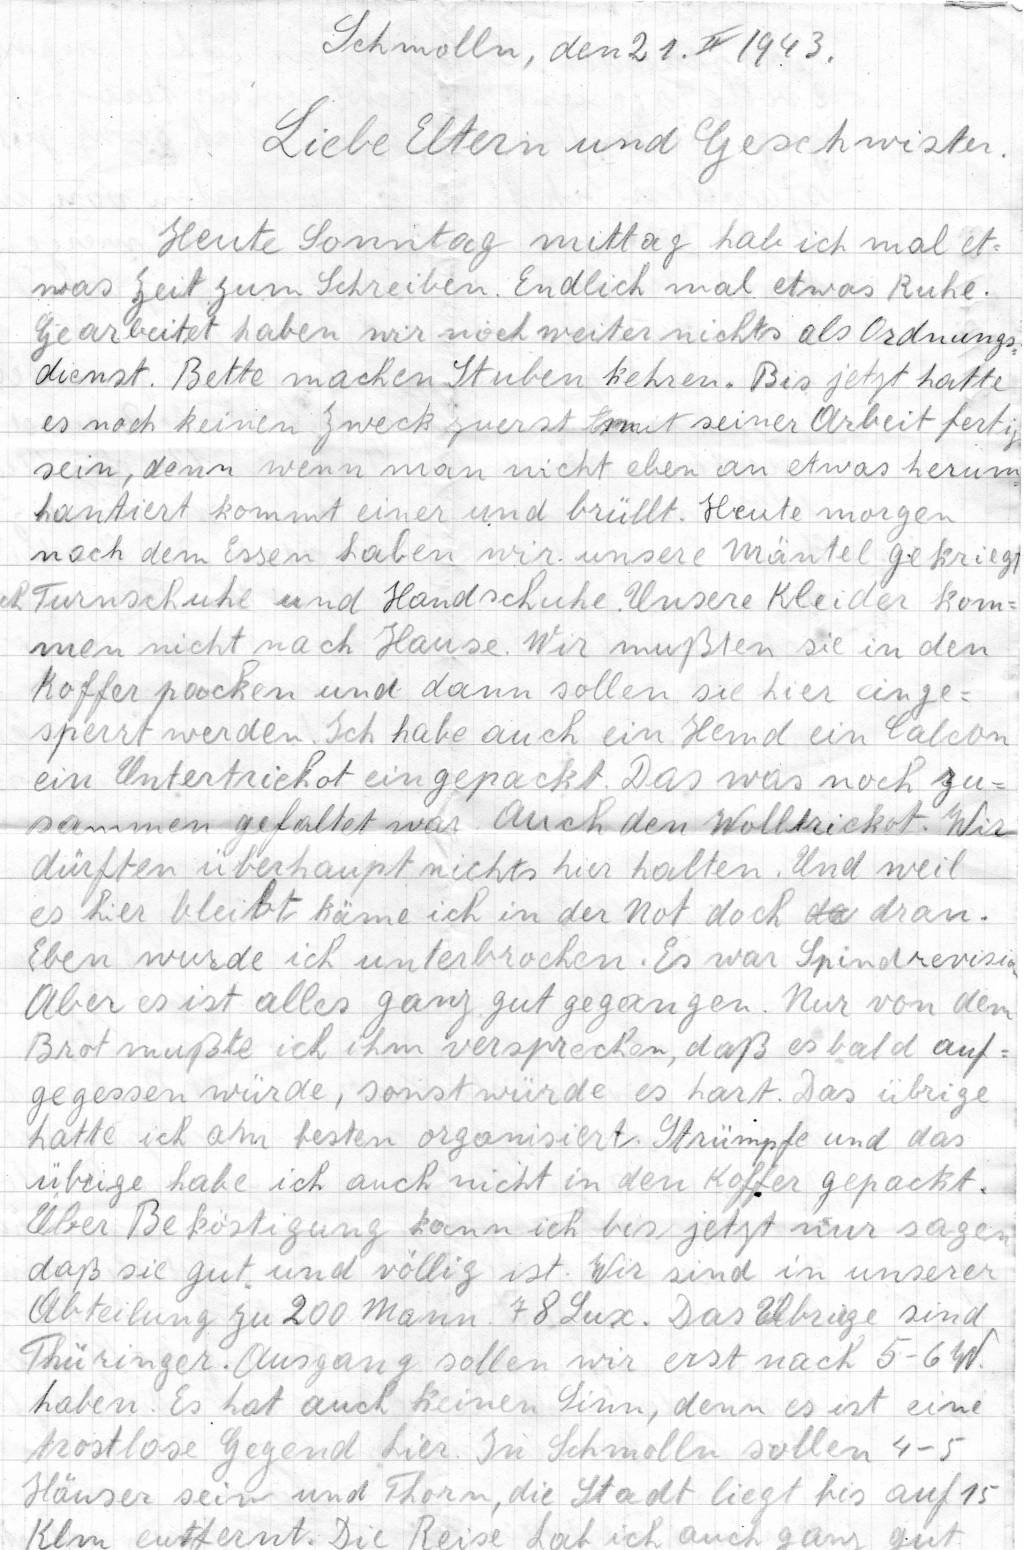 Schmolln, den 21. II 1943.
Liebe Eltern und Geschwister.
Heute Sonntag mittag hab ich mal et=
was Zeit zum Schreiben. Endlich mal etwas Ruhe.
Gearbeitet haben wir noch weiter nichts als Ordnungs=
dienst. Bette machen Stuben kehren. Bis jetzt hatte
es noch keinen Zweck zuerst mit seiner Arbeit fertig
sein, denn wenn man nicht eben an etwas herum=
hantiert kommt einer und brüllt. Heute morgen
nach dem Essen haben wir unsere Mäntel gekriegt
Turnschuhe und Handschuhe. Unsere Kleider kom=
men nicht nach Hause. Wir mußten sie in den
Koffer packen und dann sollen sie hier einge=
sperrt werden. Ich habe auch ein Hemd ein Calcon
ein Untertrickot eingepackt. Das was noch zu=
sammen gefaltet war. Auch den Wolltrickot. Wir
dürften überhaupt nichts hier halten. Und weil
es hier bleibt käme ich in der Not doch dran.
Eben wurde ich unterbrochen. Es war Spindrevision
Aber es ist alles ganz gut gegangen. Nur von dem
Brot mußte ich ihm versprechen, daß es bald auf=
gegessen würde, sonst würde es hart. Das übrige
hatte ich am besten organisiert. Strümpfe und das
übrige habe ich auch nicht in den Koffer gepackt.
Über Beköstigung kann ich bis jetzt nur sagen
daß sie gut und völlig ist. Wir sind in unserer
Abteilung zu 200 Mann. 78 Lux. Das Übrige sind
Thüringer. Ausgang sollen wir erst nach 5-6 W.
haben. Es hat auch keinen Sinn, denn es ist eine
trostlose Gegend hier. In Schmolln sollen 4-5
Häuser sein und Thorn, die Stadt liegt bis auf 15
Klm entfernt. Die Reise hab ich auch ganz gut